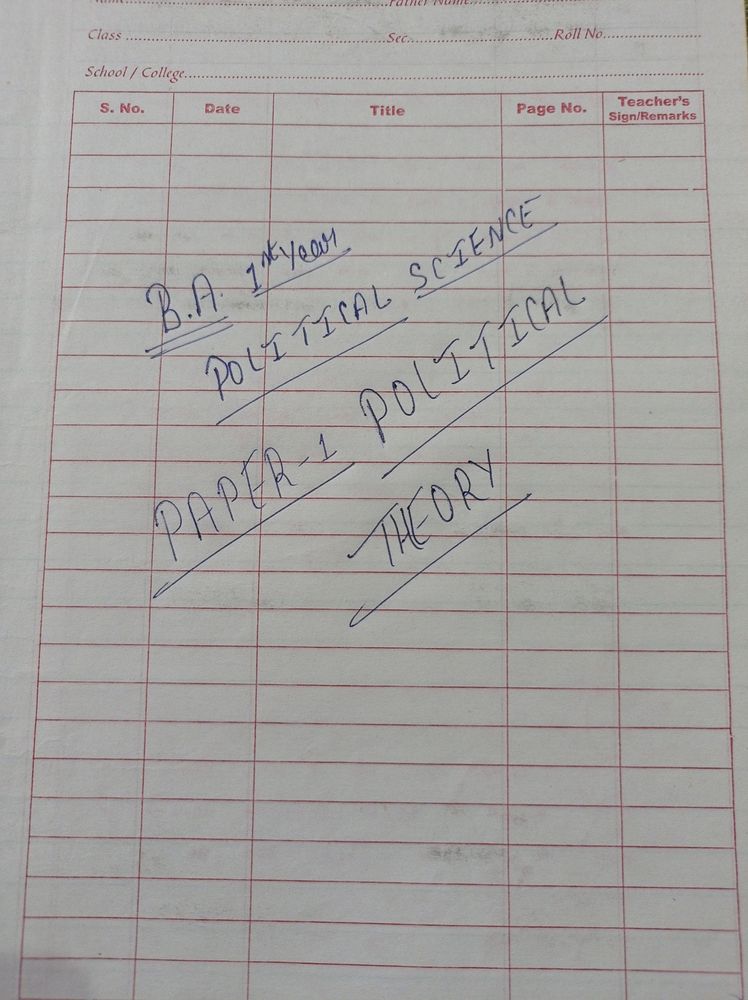 Name.......... Father Name..........
Class .......... Sec.......... Roll No..........
School / College..........
S. No. Date Title Page No. Teacher's Sign/Remarks
B.A. 1st Year
POLITICAL SCIENCE
PAPER-1 POLITICAL
THEORY